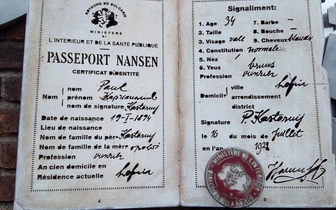 ROYAUME DE BULGARIE
MINISTERE
DE
L'INTERIEUR ET DE LA SANTÉ PUBLIQUE
PASSEPORT NANSEN
CERTIFICAT D'IDENTITÉ
nom Paul
Nom prénom
nom de signature Kasterny
Date de naissance 19-I-1894
Lieu de naissance
Nom de famille du père Kasterny
Nom de famille de la mère
Profession ouvrier
An cien domicile en
Résidence actuelle Sofia
Signaliment:
1. Age 34
2. Taille
3. Visage
4. Constitution normale
5. Nez
6. Yeux bruns
7. Barbe -
8. Bouche -
9. Cheveux
Profession ouvrier
Domicile
arrondissement
district
Sofia
Signature P. Kasterny
le 16 mois de Juillet
l'an 1928